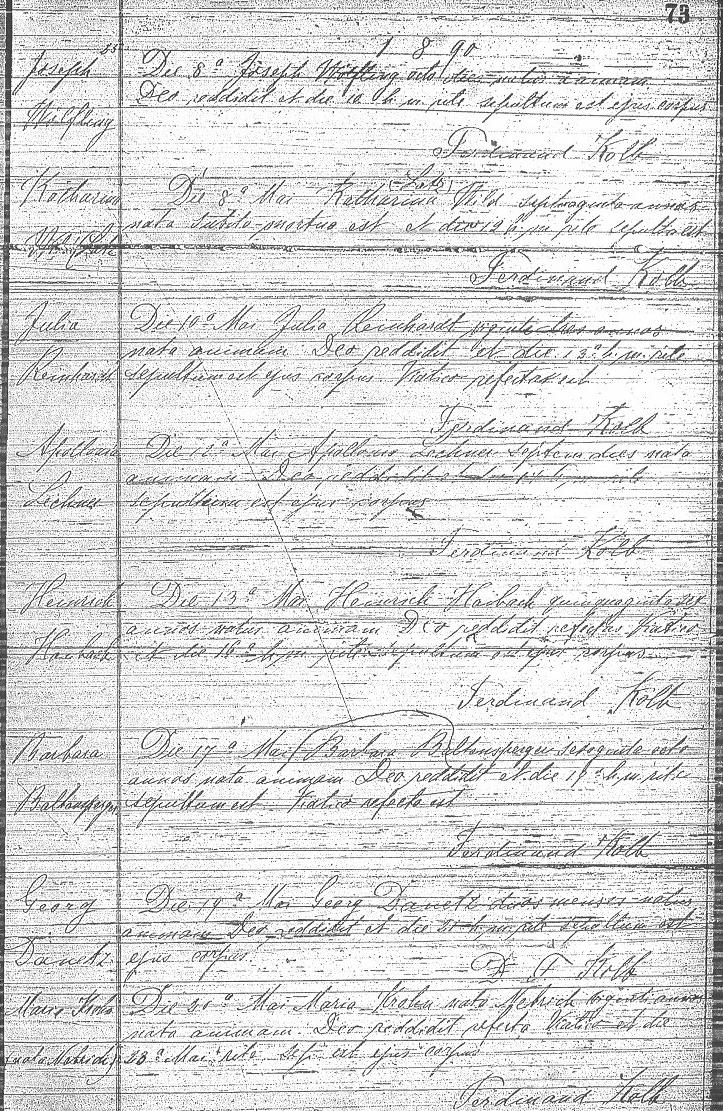 73
1890
Joseph Wilfling
Die 8ª Joseph Wölfling octo dies natus animam
Deo reddidit et die 10 h. m. rite sepultum est ejus corpus
Ferdinand Kolb
Katharina
Die 8ª Mai Katharina (Lotz) Wild septuaginta annos
nata subito mortua est et die 12 h. m. rite sepulta est
Ferdinand Kolb
Julia Reinhardt
Die 10ª Mai Julia Reinhardt viginti tres annos
nata animam Deo reddidit et die 13ª h. m. rite
sepultum est ejus corpus Viatico refecta est
Ferdinand Kolb
Apollonia Lechner
Die 12ª Mai Apollonia Lechner septem dies nata
animam Deo reddidit et rite
sepultum est ejus corpus
Ferdinand Kolb
Heinrich Haibach
Die 13ª Mai Heinrich Haibach quinquaginta
annos natus animam Deo reddidit refectus Viatico
et die 16ª h. m. rite sepultum est ejus corpus
Ferdinand Kolb
Barbara Baltensperger
Die 17ª Mai Barbara Baltensperger sexaginta octo
annos nata animam Deo reddidit et die 19ª h. m. rite
sepulta est Viatico refecta est
Ferdinand Kolb
Georg Danetz
Die 19ª Mai Georg Danetz duos menses natus
animam Deo reddidit et die 21 h. m. rite sepultum est
ejus corpus.
F Kolb
Maria Krohn
(nata Netrich)
Die 21ª Mai Maria Krohn nata Netrich viginti annos
nata animam Deo reddidit refecta Viatico et die
23ª Mai rite sep. est ejus corpus
Ferdinand Kolb